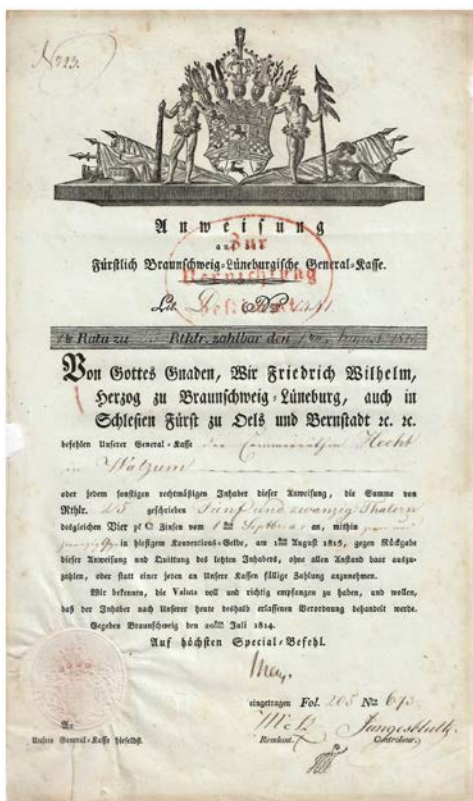 No 723.
Anweisung
auf die
Fürstlich Braunschweig-Lüneburgische General-Kasse.
Zur
Vernichtung
bestimmt
Lit. D
Rata zu Rthlr. zahlbar den 1ten August 1815
Von Gottes Gnaden, Wir Friedrich Wilhelm,
Herzog zu Braunschweig-Lüneburg, auch in
Schlesien Fürst zu Oels und Bernstadt ꝛc. ꝛc.
befehlen Unserer General-Kasse Hecht
in Watzum
oder jedem sonstigen rechtmäßigen Inhaber dieser Anweisung, die Summe von
Rthlr. 25 geschrieben Fünf und zwanzig Thalern
desgleichen Vier pCt Zinsen vom 1ten September an, mithin
in hiesigem Konventions-Gelde, am 1sten August 1815, gegen Rückgabe
dieser Anweisung und Quittung des letzten Inhabers, ohne allen Anstand baar auszu-
zahlen, oder statt einer jeden an Unsere Kassen fällige Zahlung anzunehmen.
Wir bekennen, die Valuta voll und richtig empfangen zu haben, und wollen,
daß der Inhaber nach Unserer heute deshalb erlassenen Verordnung behandelt werde.
Gegeben Braunschweig den 20sten Juli 1814.
Auf höchsten Special-Befehl.
eingetragen Fol. 205 No 673
An
Unsere General-Kasse hieselbst.
Rendant.
Jungesbluth
Controleur.